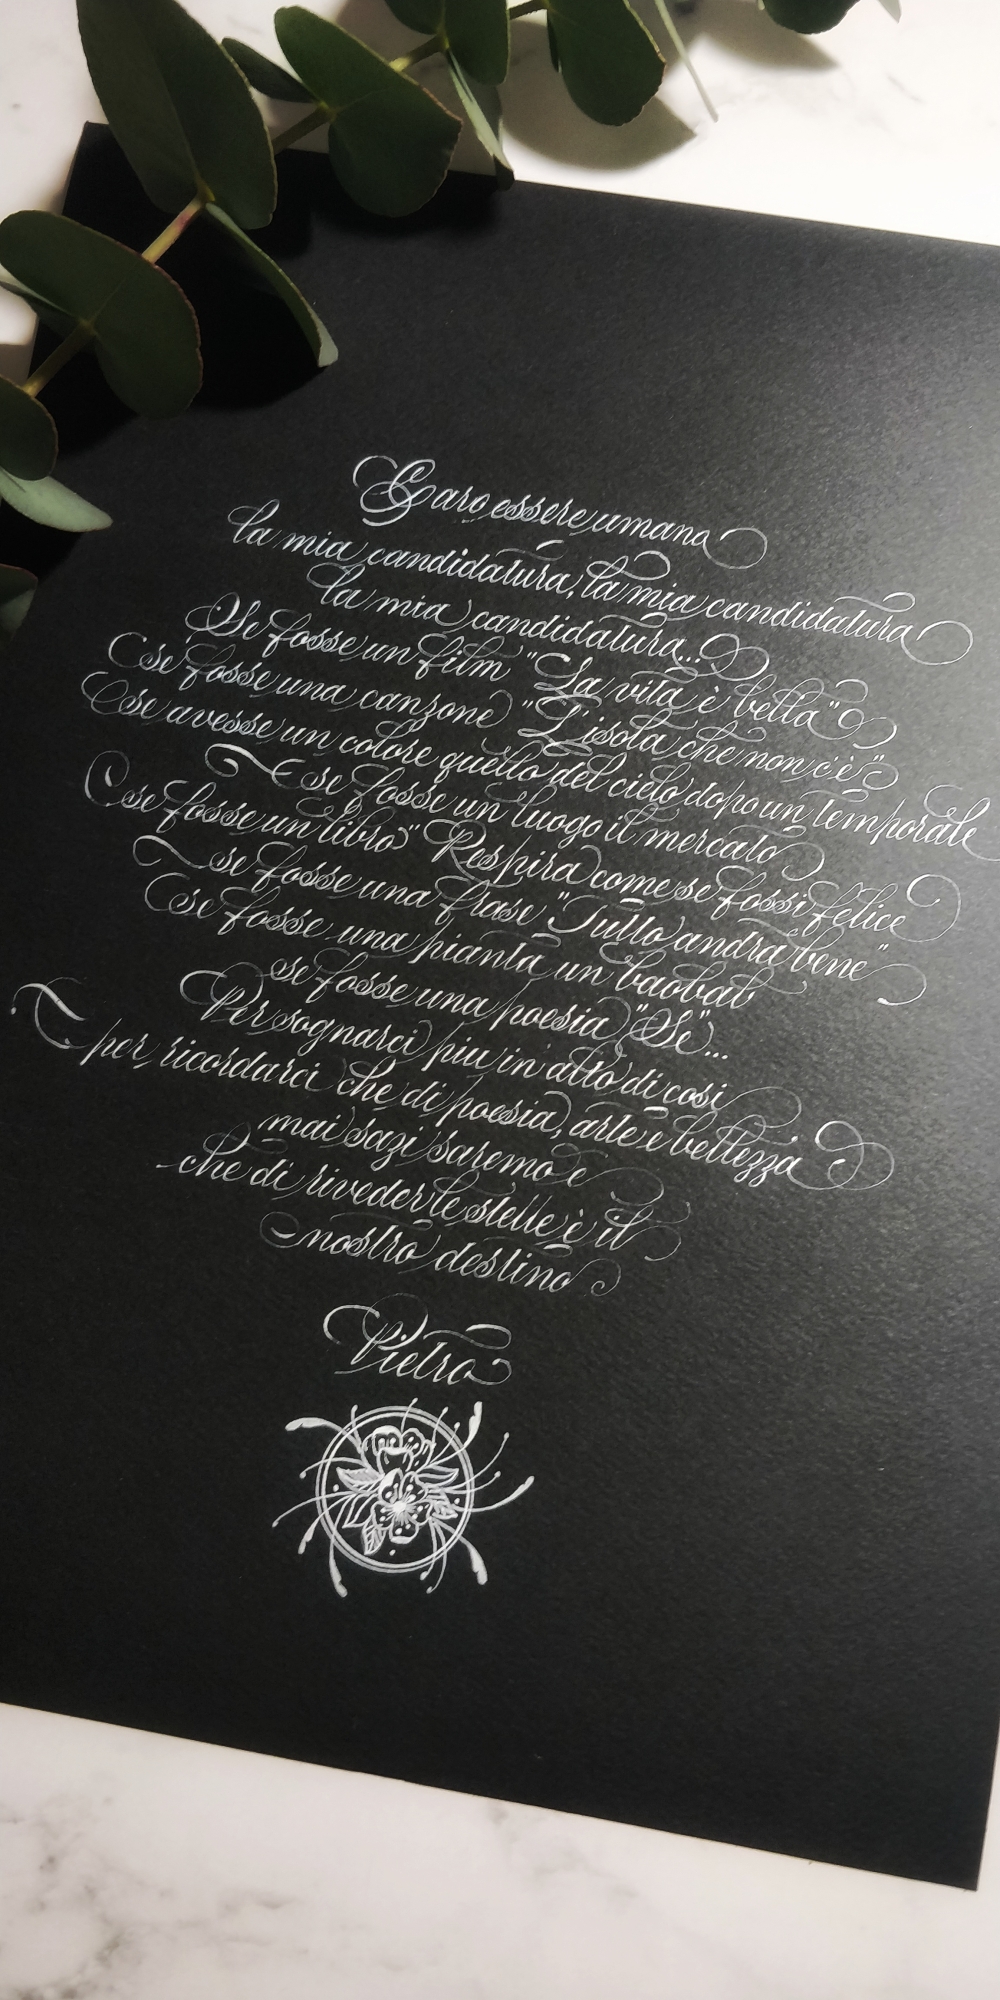 Caro essere umano
la mia candidatura, la mia candidatura
la mia candidatura...
Se fosse un film "La vita è bella"
se fosse una canzone "L'isola che non c'è"
se avesse un colore quello del cielo dopo un temporale
se fosse un luogo il mercato
se fosse un libro" Respira come se fossi felice
se fosse una frase "Tutto andrà bene"
se fosse una pianta un baobab
se fosse una poesia "Se"...
Per sognarci più in alto di così
per ricordarci che di poesia, arte e bellezza
mai sazi saremo e
che di riveder le stelle è il
nostro destino
Pietro